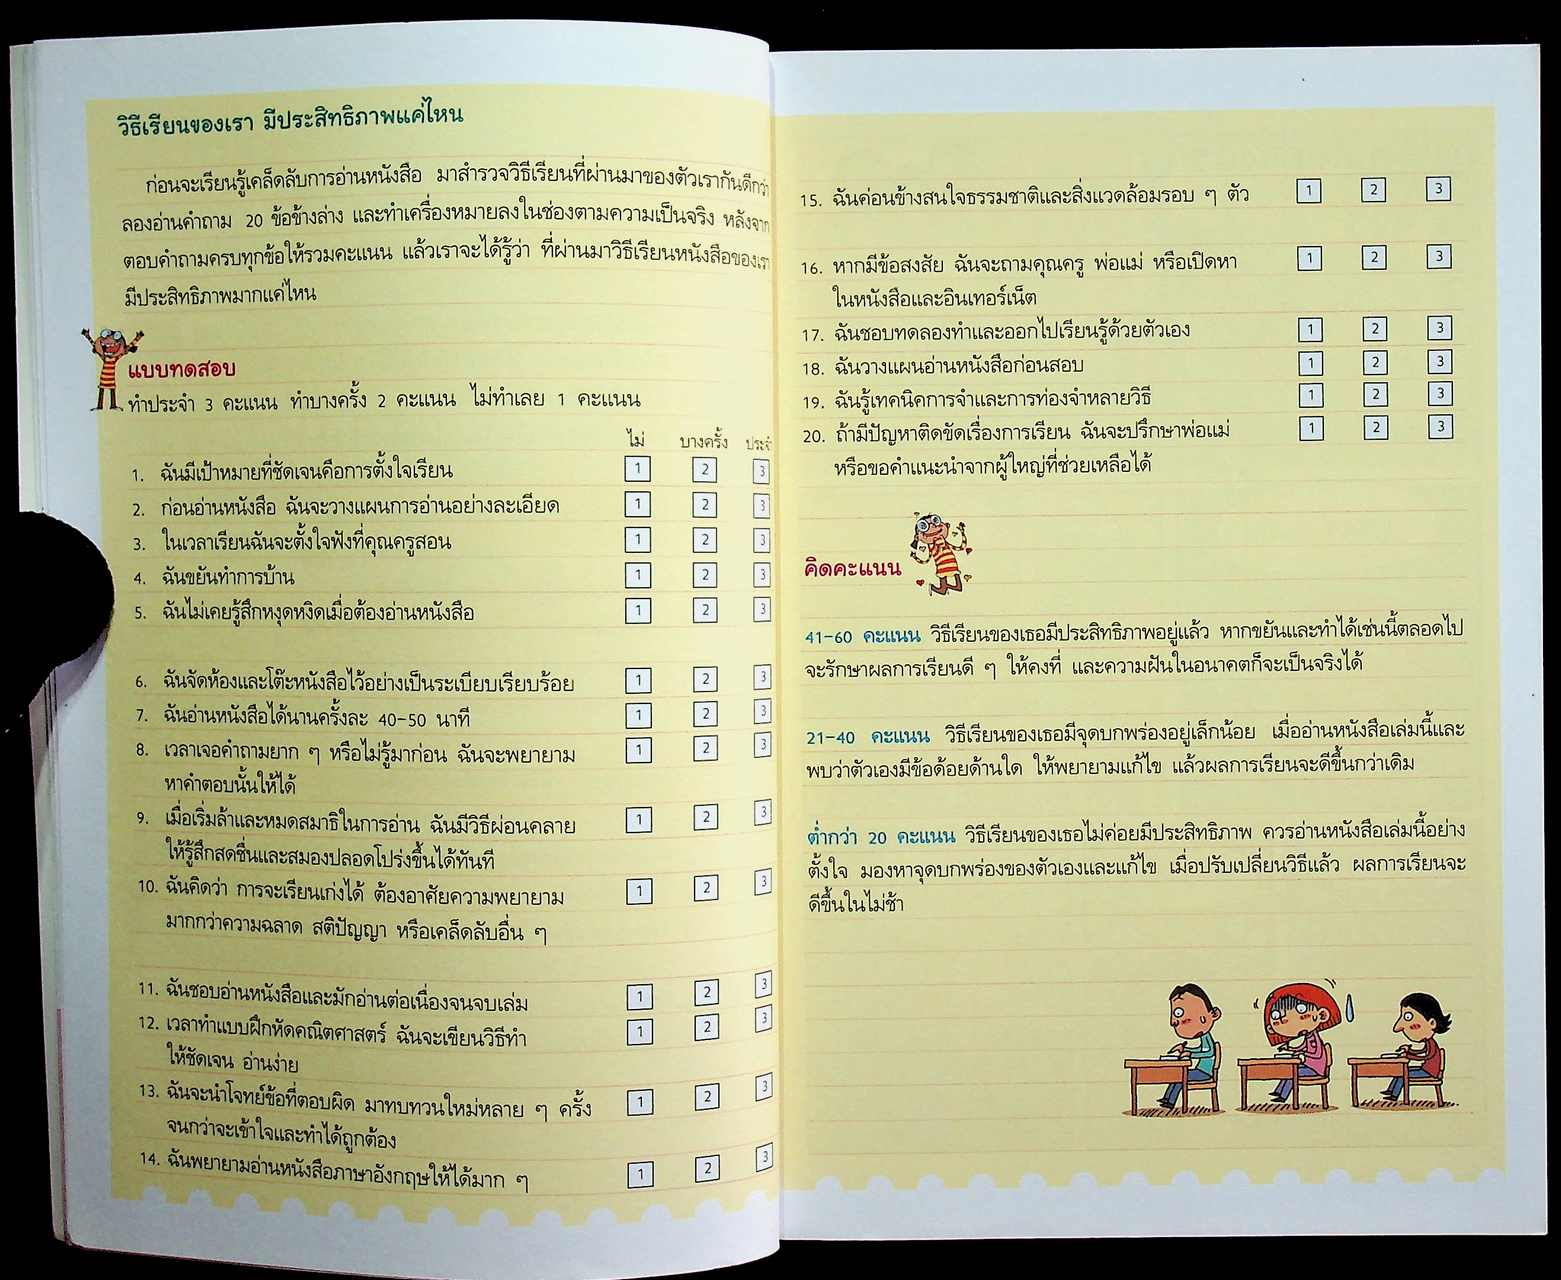 วิธีเรียนของเรา มีประสิทธิภาพแค่ไหน
ก่อนจะเรียนรู้เคล็ดลับการอ่านหนังสือ มาสำรวจวิธีเรียนที่ผ่านมาของตัวเรากันดีกว่า
ลองอ่านคำถาม 20 ข้อข้างล่าง และทำเครื่องหมายลงในช่องตามความเป็นจริง หลังจาก
ตอบคำถามครบทุกข้อให้รวมคะแนน แล้วเราจะได้รู้ว่า ที่ผ่านมาวิธีเรียนหนังสือของเรา
มีประสิทธิภาพมากแค่ไหน
แบบทดสอบ
ทำประจำ 3 คะแนน ทำบางครั้ง 2 คะแนน ไม่ทำเลย 1 คะแนน
ไม่ บางครั้ง ประจำ
1. ฉันมีเป้าหมายที่ชัดเจนคือการตั้งใจเรียน 1 2 3
2. ก่อนอ่านหนังสือ ฉันจะวางแผนการอ่านอย่างละเอียด 1 2 3
3. ในเวลาเรียนฉันจะตั้งใจฟังที่คุณครูสอน 1 2 3
4. ฉันขยันทำการบ้าน 1 2 3
5. ฉันไม่เคยรู้สึกหงุดหงิดเมื่อต้องอ่านหนังสือ 1 2 3
6. ฉันจัดห้องและโต๊ะหนังสือไว้อย่างเป็นระเบียบเรียบร้อย 1 2 3
7. ฉันอ่านหนังสือได้นานครั้งละ 40-50 นาที 1 2 3
8. เวลาเจอคำถามยาก ๆ หรือไม่รู้มาก่อน ฉันจะพยายาม 1 2 3
หาคำตอบนั้นให้ได้
9. เมื่อเริ่มล้าและหมดสมาธิในการอ่าน ฉันมีวิธีผ่อนคลาย 1 2 3
ให้รู้สึกสดชื่นและสมองปลอดโปร่งขึ้นได้ทันที
10. ฉันคิดว่า การจะเรียนเก่งได้ ต้องอาศัยความพยายาม 1 2 3
มากกว่าความฉลาด สติปัญญา หรือเคล็ดลับอื่น ๆ
11. ฉันชอบอ่านหนังสือและมักอ่านต่อเนื่องจนจบเล่ม 1 2 3
12. เวลาทำแบบฝึกหัดคณิตศาสตร์ ฉันจะเขียนวิธีทำ 1 2 3
ให้ชัดเจน อ่านง่าย
13. ฉันจะนำโจทย์ข้อที่ตอบผิด มาทบทวนใหม่หลาย ๆ ครั้ง 1 2 3
จนกว่าจะเข้าใจและทำได้ถูกต้อง
14. ฉันพยายามอ่านหนังสือภาษาอังกฤษให้ได้มาก ๆ 1 2 3
15. ฉันค่อนข้างสนใจธรรมชาติและสิ่งแวดล้อมรอบ ๆ ตัว 1 2 3
16. หากมีข้อสงสัย ฉันจะถามคุณครู พ่อแม่ หรือเปิดหา 1 2 3
ในหนังสือและอินเทอร์เน็ต
17. ฉันชอบทดลองทำและออกไปเรียนรู้ด้วยตัวเอง 1 2 3
18. ฉันวางแผนอ่านหนังสือก่อนสอบ 1 2 3
19. ฉันรู้เทคนิคการจำและการท่องจำหลายวิธี 1 2 3
20. ถ้ามีปัญหาติดขัดเรื่องการเรียน ฉันจะปรึกษาพ่อแม่ 1 2 3
หรือขอคำแนะนำจากผู้ใหญ่ที่ช่วยเหลือได้
คิดคะแนน
41-60 คะแนน วิธีเรียนของเธอมีประสิทธิภาพอยู่แล้ว หากขยันและทำได้เช่นนี้ตลอดไป
จะรักษาผลการเรียนดี ๆ ให้คงที่ และความฝันในอนาคตก็จะเป็นจริงได้
21-40 คะแนน วิธีเรียนของเธอมีจุดบกพร่องอยู่เล็กน้อย เมื่ออ่านหนังสือเล่มนี้และ
พบว่าตัวเองมีข้อด้อยด้านใด ให้พยายามแก้ไข แล้วผลการเรียนจะดีขึ้นกว่าเดิม
ต่ำกว่า 20 คะแนน วิธีเรียนของเธอไม่ค่อยมีประสิทธิภาพ ควรอ่านหนังสือเล่มนี้อย่าง
ตั้งใจ มองหาจุดบกพร่องของตัวเองและแก้ไข เมื่อปรับเปลี่ยนวิธีแล้ว ผลการเรียนจะ
ดีขึ้นในไม่ช้า